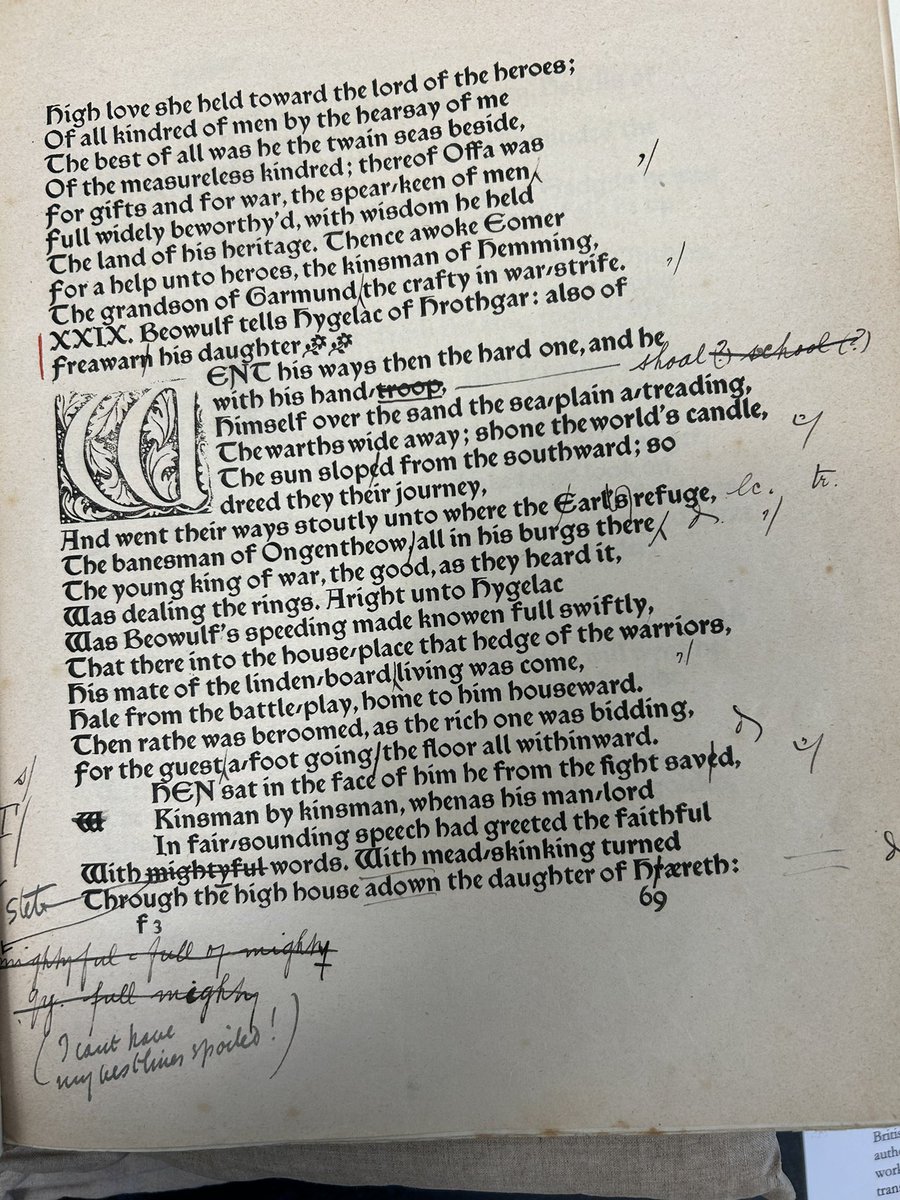 High love she held toward the lord of the heroes;
Of all kindred of men by the hearsay of me
The best of all was he the twain seas beside,
Of the measureless kindred; thereof Offa was
For gifts and for war, the spear-keen of men ,/
Full widely beworthy'd, with wisdom he held
The land of his heritage. Thence awoke Eomer
For a help unto heroes, the kinsman of Hemming,
The grandson of Garmund the crafty in war-strife. ,/
XXIX. Beowulf tells Hygelac of Hrothgar: also of
Freawarn his daughter
WENT his ways then the hard one, and he
with his hand-troop, shoal (?) school (?)
Himself over the sand the sea-plain a-treading,
The warths wide away; shone the world's candle,
The sun sloped from the southward; so
dreed they their journey,
And went their ways stoutly unto where the Earl's refuge, lc. tr.
The banesman of Ongentheow all in his burgs there ,/
The young king of war, the good, as they heard it,
Was dealing the rings. Aright unto Hygelac
Was Beowulf's speeding made knowen full swiftly,
That there into the house-place that hedge of the warriors,
His mate of the linden-board living was come, ,/
Hale from the battle-play, home to him houseward.
Then rathe was beroomed, as the rich one was bidding,
For the guest a-foot going the floor all withinward.
s/
HEN sat in the face of him he from the fight saved,
T/
W Kinsman by kinsman, whenas his man-lord
In fair-sounding speech had greeted the faithful
With mightyful words. With mead-skinking turned
Stet
Through the high house adown the daughter of Hræreth:
f3 69
mightyful = full of mighty
qy. full mighty
(I cant have
my best lines spoiled!)
Britis
auth
work
trans